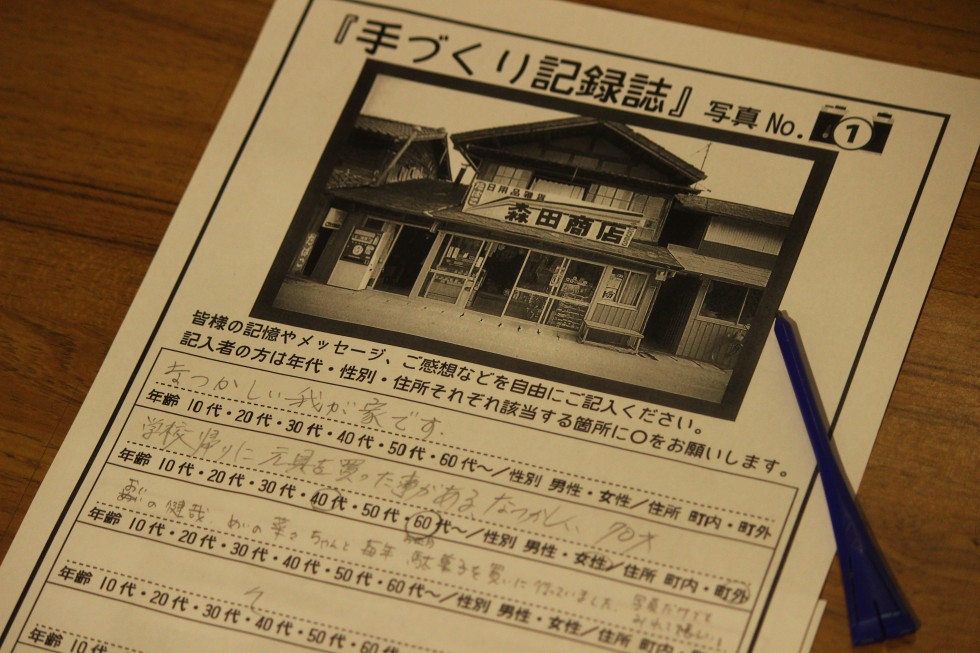 『手づくり記録誌』写真 No. 1
日用品雑貨
森田商店
皆様の記憶やメッセージ、ご感想などを自由にご記入ください。
記入者の方は年代・性別・住所それぞれ該当する箇所に〇をお願いします。
なつかしい我が家です。
年齢 10代・20代・30代・40代・50代・60代〜／性別 男性・女性／住所 町内・町外
学校帰りに 文具を買った事がある なつかしく、
年齢 10代・20代・30代・40代・50代・60代〜／性別 男性・女性／住所 町内・町外
おいの健哉、めいの ちゃんと 毎年 駄菓子を買いに行っていました。写真だけでも
年齢 10代・20代・30代・40代・50代・60代〜／性別 男性・女性／住所 町内・町
年齢 10代・20代・30代・40代・50代・60代
年齢 10代